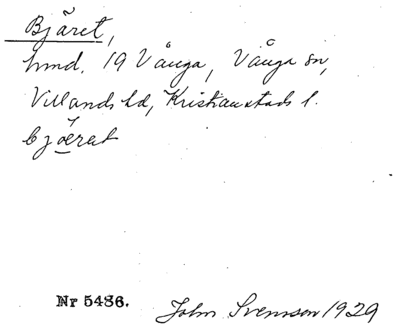 Bjäret,
hmd. 19 Vånga, Vånga sn,
Villands hd, Kristianstads l.
bjöerat
Nr 5486.
John Svensson 1929